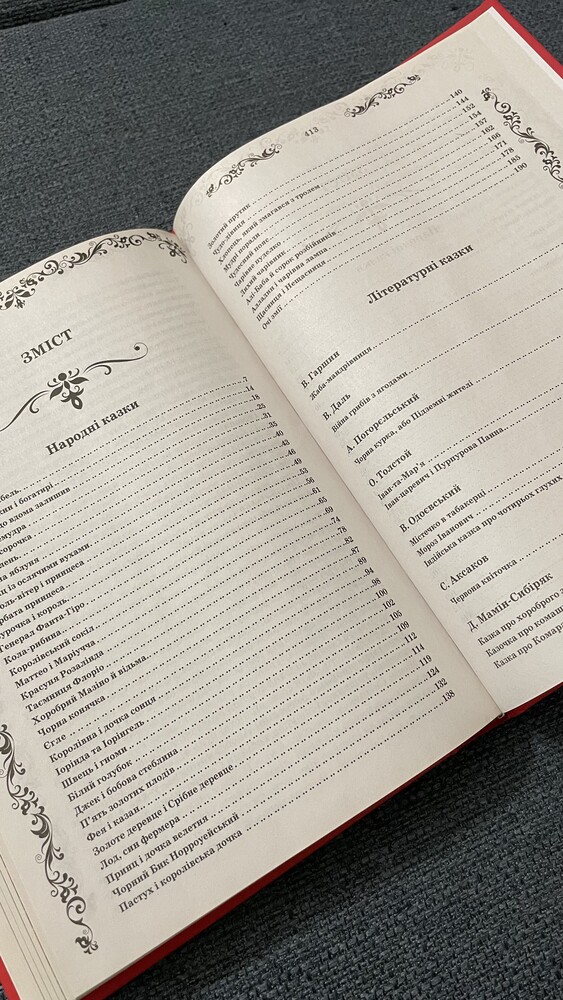 ЗМІСТ
Народні казки
7
син і богатирі 14
вдома залишив 18
мудра 25
сорочка 31
35
яблуня 40
із ослячими вухами 43
вітер і принцеса 46
принцеса 49
і король 53
Генерал Фанта-Гіро 56
Кола-рибина 61
Королівський сокіл 65
Маттео і Маріучча 69
Красуня Розалінда 74
Таємниця Флоріо 78
Хоробрий Мазіно й відьма 82
Чорна конячка 87
Єгле 89
Королівна і дочка сонця 94
Йорінда та Йорінгель 98
Швець і гноми 100
Білий голубок 102
Джек і бобова стеблина 105
П'ять золотих плодів 109
Фея і казан 112
Золоте деревце і Срібне деревце 114
Лод, син фермера 119
Принц і дочка велетня 124
Чорний Бик Норроуейський 132
Пастух і королівська дочка 138
413
Золотий прутик 140
Чудо-дівиця 144
Хлопець, який змагався з тролем 152
Мудрі поради 154
Чудесний пояс 157
Чарівне пуделко 162
Лихий чарівник 166
Алі-Баба й сорок розбійників 171
Аладдин і чарівна лампа 178
Щасниця і Нещасниця 185
Очі змії 190
Літературні казки
В. Гаршин
Жаба-мандрівниця
В. Даль
Війна грибів з ягодами
А. Погорєльський
Чорна курка, або Підземні жителі
О. Толстой
Іван-та-Мар'я
Іван-царевич і Пурпурова Панна
В. Одоєвський
Містечко в табакерці
Мороз Іванович
Індійська казка про чотирьох глухих
С. Аксаков
Червона квіточка
Д. Мамін-Сибіряк
Казка про хороброго
Казочка про
Казка про